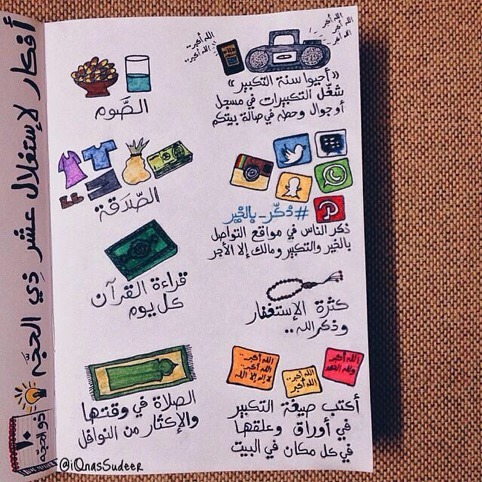 أفكار لإستغلال عشر ذي الحجّه
١٠
ذو الحجه
الله أكبر..
الله أكبر..
الله أكبر..
الله أكبر..
الله أكبر..
«أحيوا سنة التكبير»
شغّل التكبيرات في مسجل
أو جوال وحطه في صالة بيتكم
الصّوم
#ذكّر_بالخير
ذكر الناس في مواقع التواصل
بالخير والتكبير ومالك إلا الأجر
الصّدقة
كثرة الإستغفار
وذكر الله..
قراءة القرآن
كل يوم
الله أكبر..
الله أكبر..
لا إله إلا الله
الله أكبر..
الله أكبر..
الله أكبر..
ولله الحمد
أكتب صيغة التكبير
في أوراق وعلقها
في كل مكان في البيت
الصلاة في وقتها
والإكثار من النوافل
@iQnasSudeer